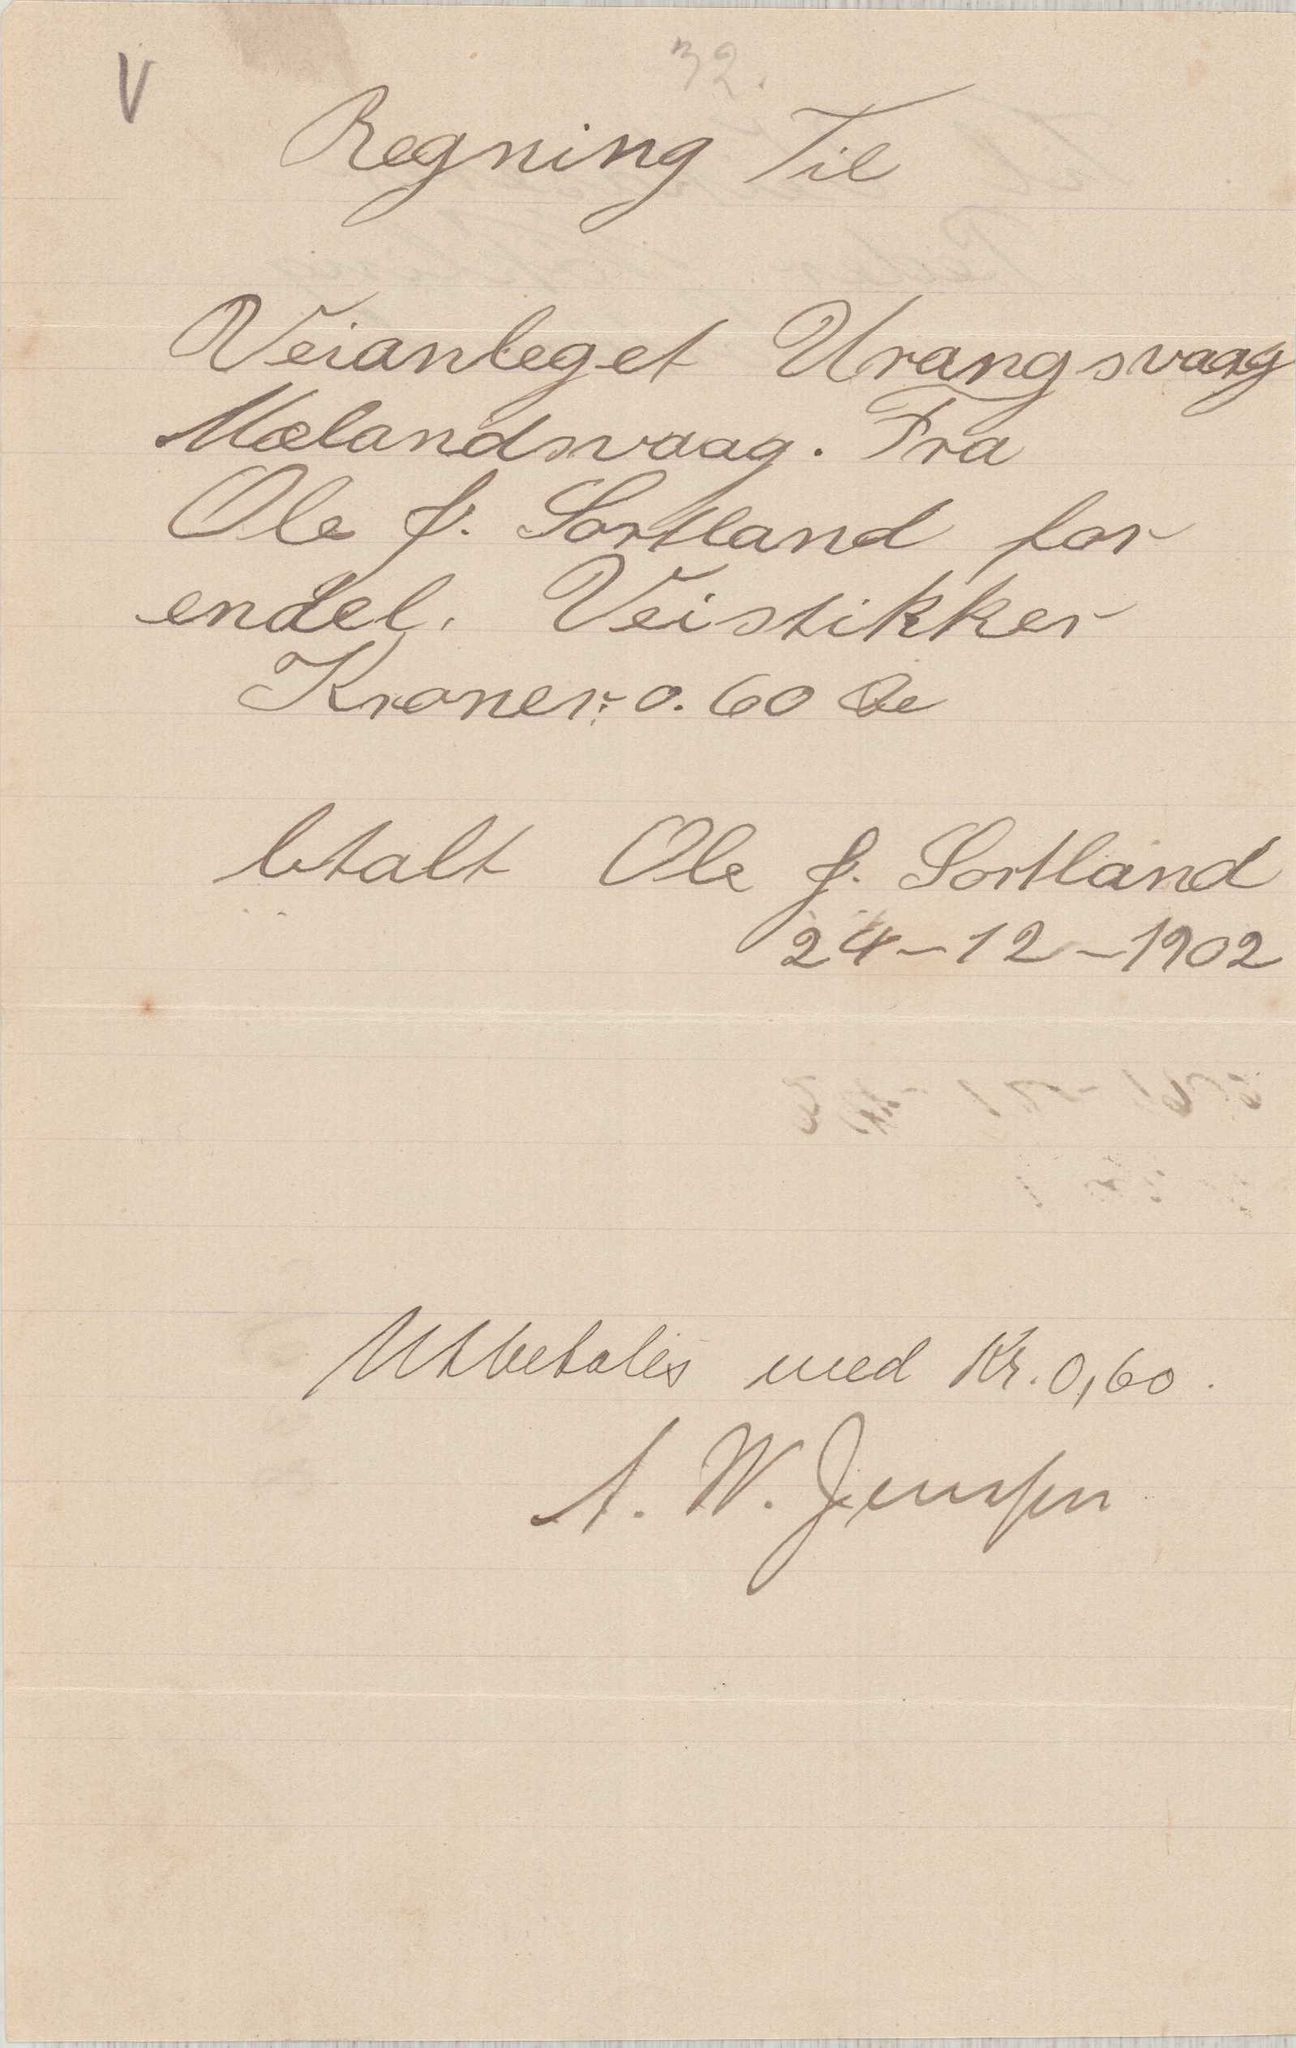 V
32.
Regning Til
Veianleget Urangsvaag
Mælandsvaag. Fra
Ole J. Sortland for
endel. Veistikker
Kroner: 0.60 Øe
btalt Ole J. Sortland
24-12-1902
Utbetales med Kr. 0,60.
A. W. Jenssen